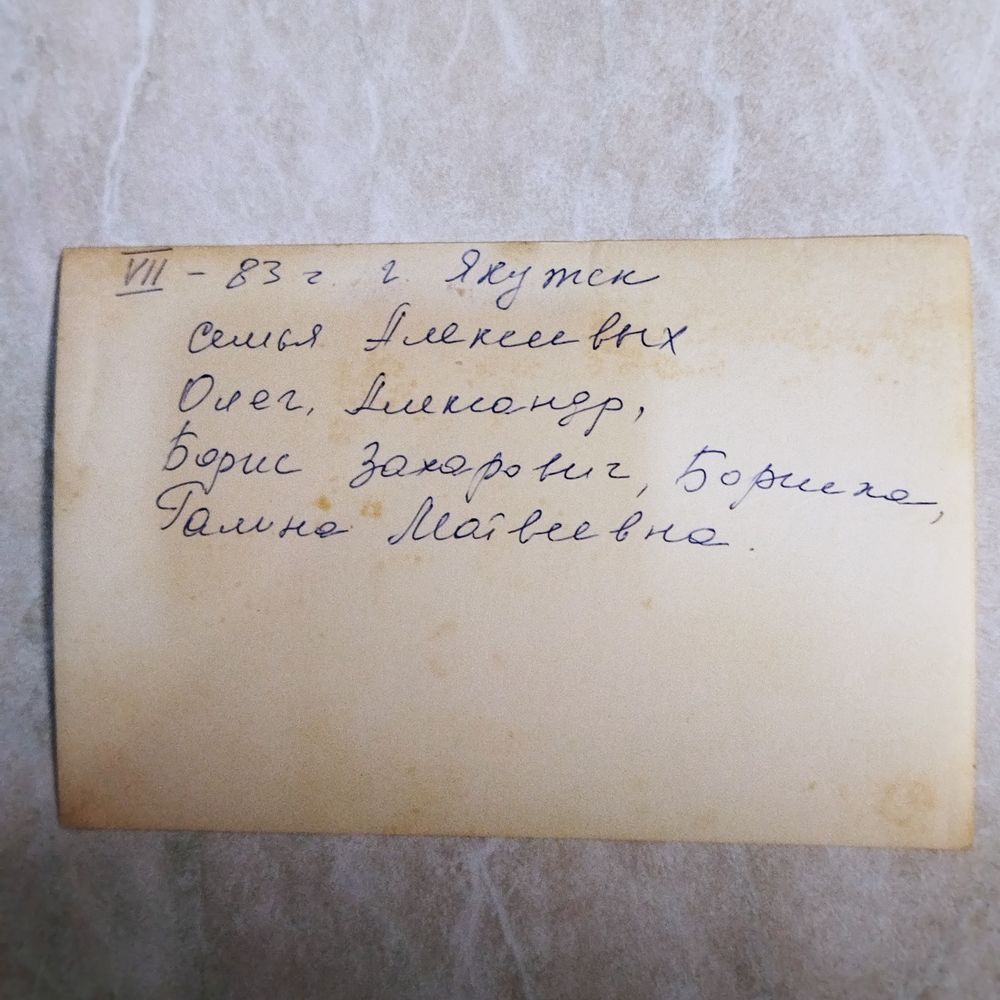 VII - 83 г. г. Якутск
семья Алексеевых
Олег, Александр,
Борис Захарович, Бориска,
Галина Матвеевна.